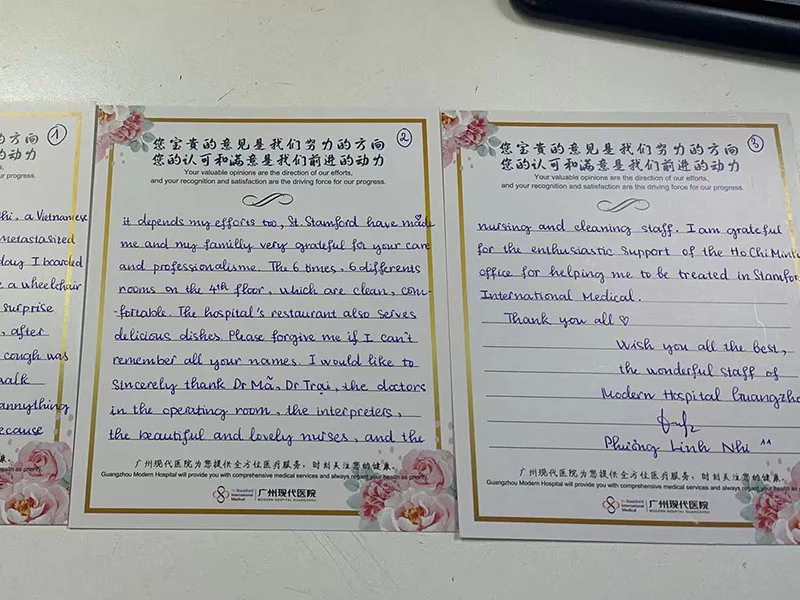 的方向
的动力
r efforts,
our progress.
1
hi, a Vietnamese
metastasized
day I boarded
e a wheelchair
surprise
, after
cough was
walk
annything
ecause
康。
health as priority.
您宝贵的意见是我们努力的方向
2
您的认可和满意是我们前进的动力
Your valuable opinions are the direction of our efforts,
and your recognition and satisfaction are the driving force for our progress.
it depends my efforts too, St. Stamford have made
me and my familly very grateful for your care
and professionalisme. The 6 times, 6 differents
rooms on the 4th floor, which are clean, com-
-fortable. The hospital's restaurant also serves
delicious dishes. Please forgive me if I can't
remember all your names. I would like to
sincerely thank Dr Mã, Dr Trại, the doctors
in the operating room, the interpreters,
the beautiful and lovely nurses, and the
广州现代医院为您提供全方位医疗服务，时刻关注您的健康。
Guangzhou Modern Hospital will provide you with comprehensive medical services and always regard your health as priority.
St.Stamford
International
Medical
广州现代医院
MODERN HOSPITAL GUANGZHOU
您宝贵的意见是我们努力的方向
3
您的认可和满意是我们前进的动力
Your valuable opinions are the direction of our efforts,
and your recognition and satisfaction are the driving force for our progress.
nursing and cleaning staff. I am grateful
for the enthusiastic support of the Ho Chi Minh
office for helping me to be treated in Stamford
International Medical.
Thank you all ♡
Wish you all the best,
the wonderful staff of
Modern Hospital Guangzho
Phương Linh Nhi ^^
广州现代医院为您提供全方位医疗服务，时刻关注您的健康。
Guangzhou Modern Hospital will provide you with comprehensive medical services and always regard your health as p
St.Stamford
International
Medical
广州现代医院
MODERN HOSPITAL GUANGZHOU